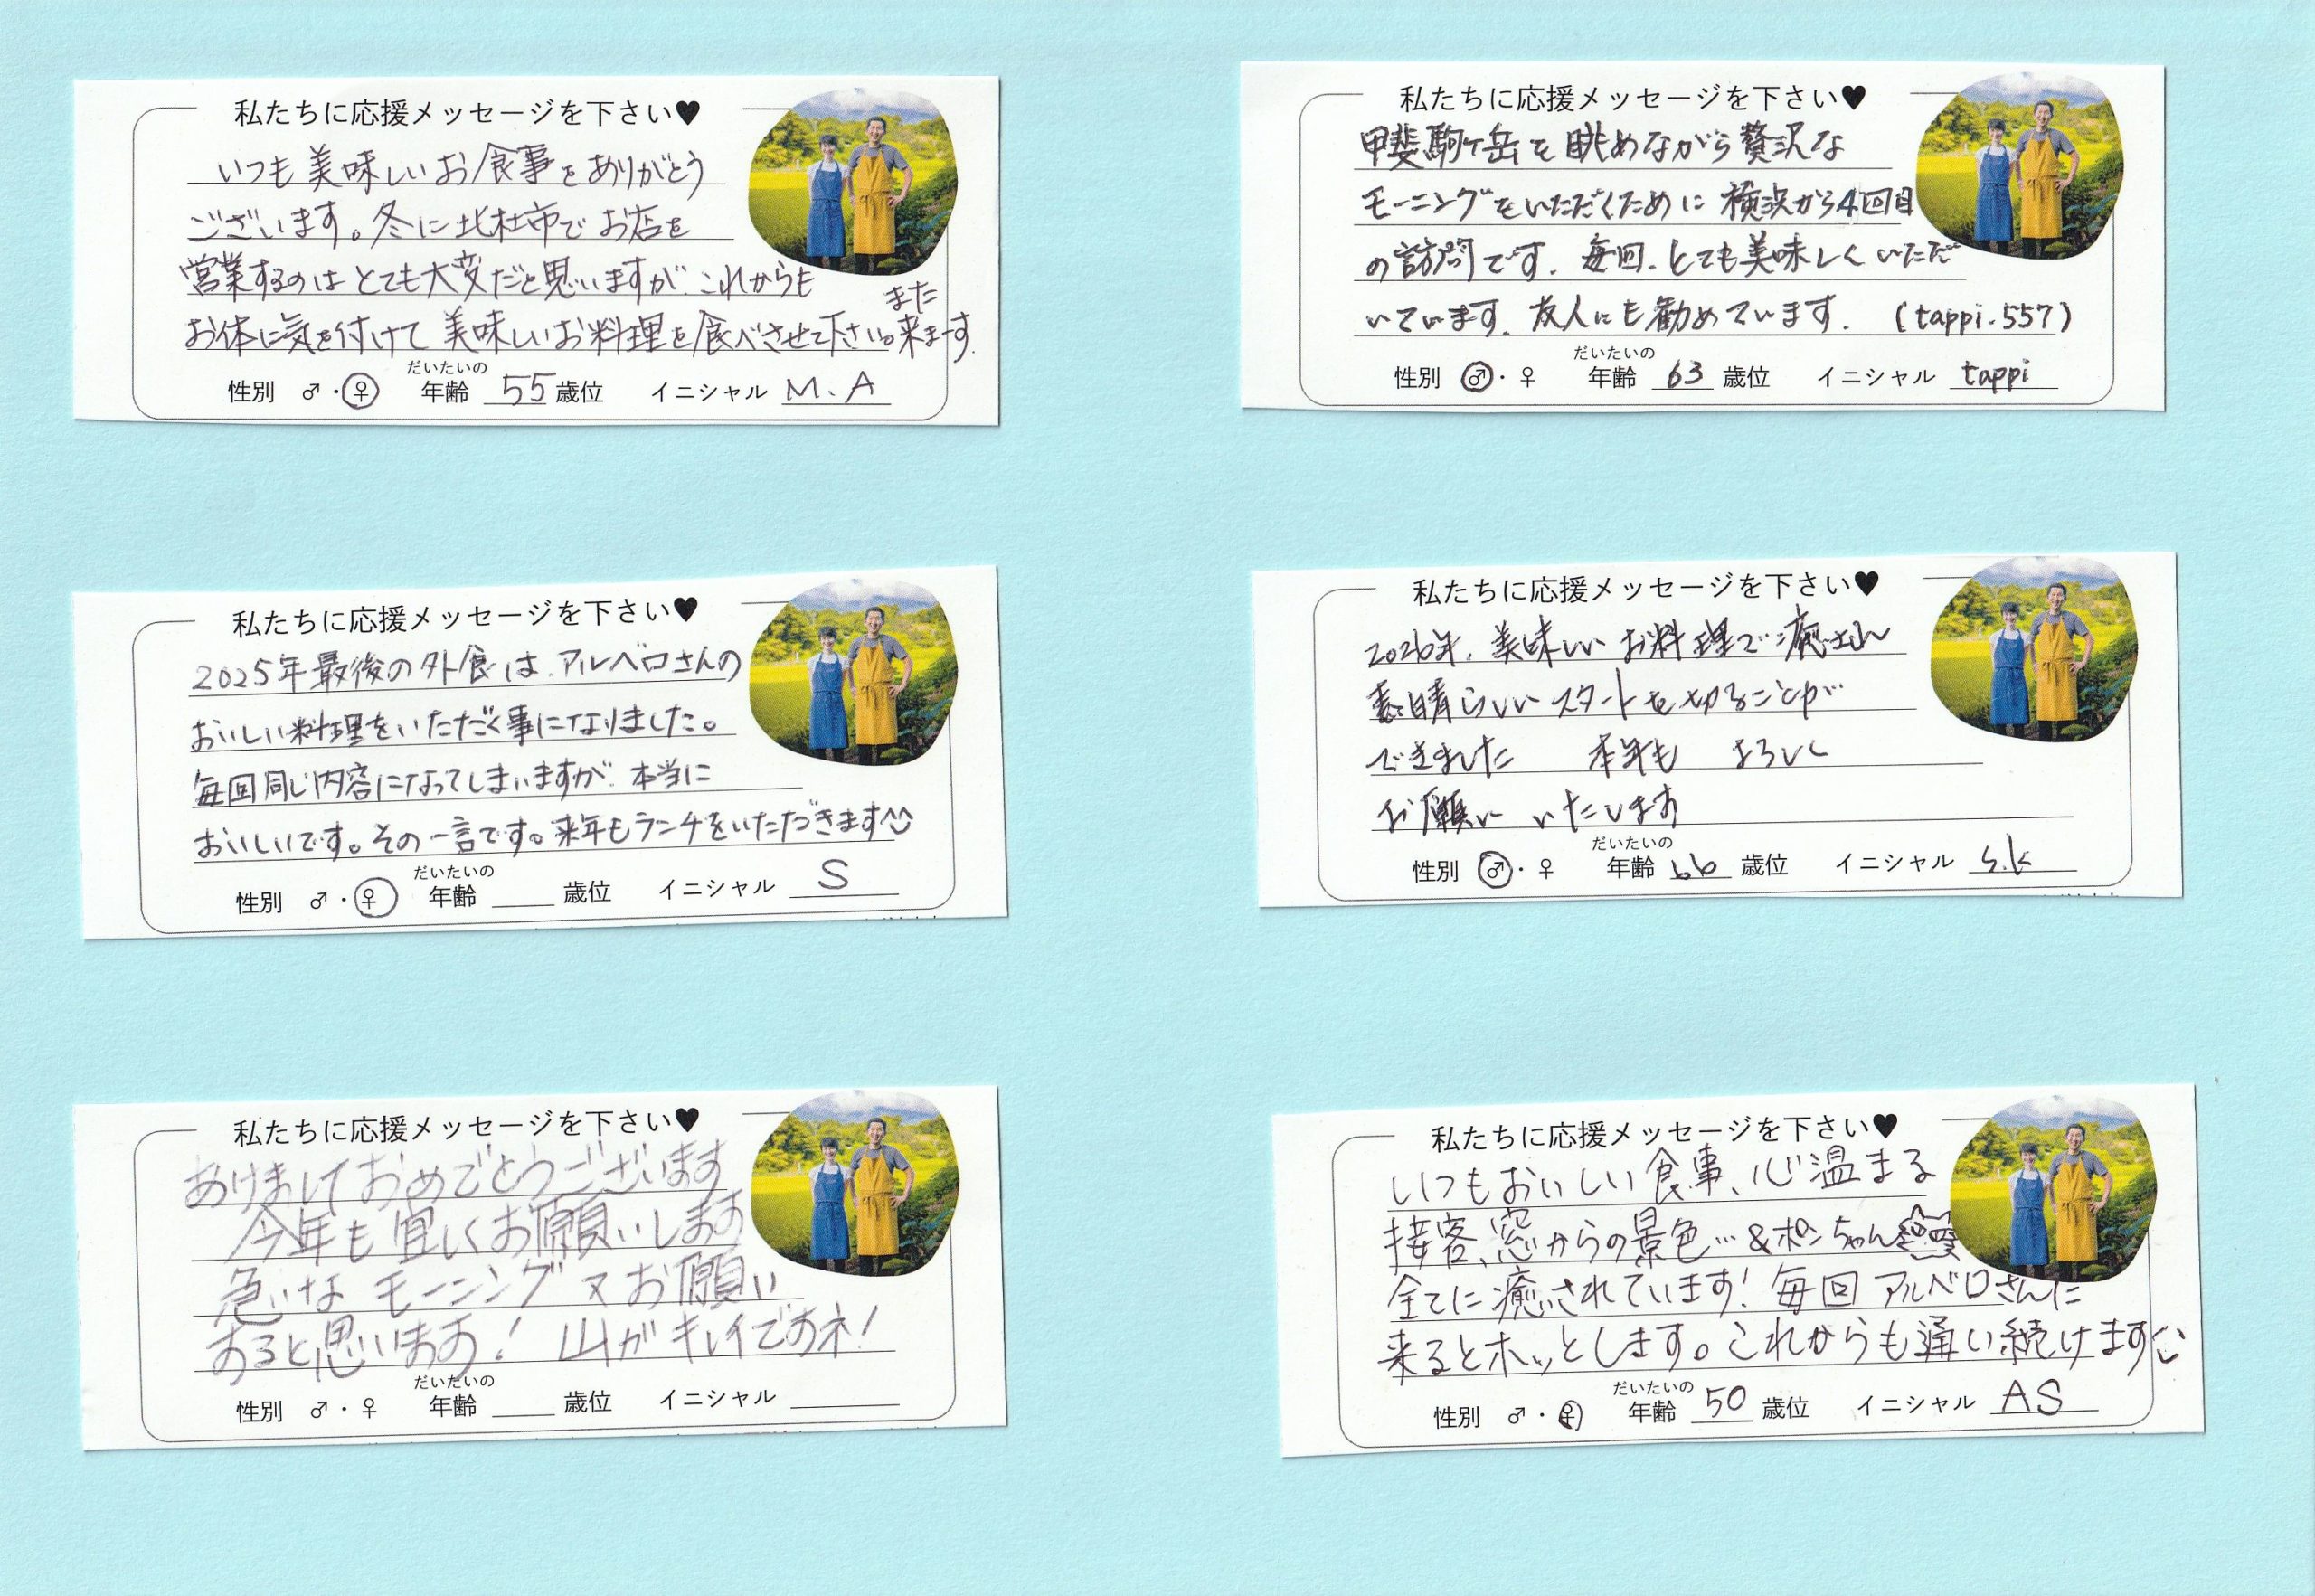 私たちに応援メッセージを下さい♥
いつも美味しいお食事をありがとう
ございます。冬に北杜市でお店を
営業するのはとても大変だと思いますが、これからも
お体に気を付けて美味しいお料理を食べさせて下さい。また来まーす。
性別 ♂・♀ だいたいの年齢 55 歳位 イニシャル M.A
私たちに応援メッセージを下さい♥
甲斐駒ケ岳を眺めながら贅沢な
モーニングをいただくために横浜から4回目
の訪問です。毎回、とても美味しくいただ
いています。友人にも勧めています。(tappi.557)
性別 ♂・♀ だいたいの年齢 63 歳位 イニシャル tappi
私たちに応援メッセージを下さい♥
2025年最後の外食は、アルベロさんの
おいしい料理をいただく事になりました。
毎回同じ内容になってしまいますが、本当に
おいしいです。その一言です。来年もランチをいただきます^^
性別 ♂・♀ だいたいの年齢 歳位 イニシャル S
私たちに応援メッセージを下さい♥
2026年、美味しいお料理で癒され
素晴らしいスタートを切ることが
できました 本年も よろしく
お願い いたします
性別 ♂・♀ だいたいの年齢 66 歳位 イニシャル S.K
私たちに応援メッセージを下さい♥
あけましておめでとうございます
今年も宜しくお願いします
急な モーニング 又お願い
すると思います! 山がキレイですネ!
性別 ♂・♀ だいたいの年齢 歳位 イニシャル
私たちに応援メッセージを下さい♥
いつもおいしい食事、心温まる
接客、窓からの景色…&ポンちゃん
全てに癒されています!毎回アルベロさんに
来るとホッとします。これからも通い続けます
性別 ♂・♀ だいたいの年齢 50 歳位 イニシャル AS